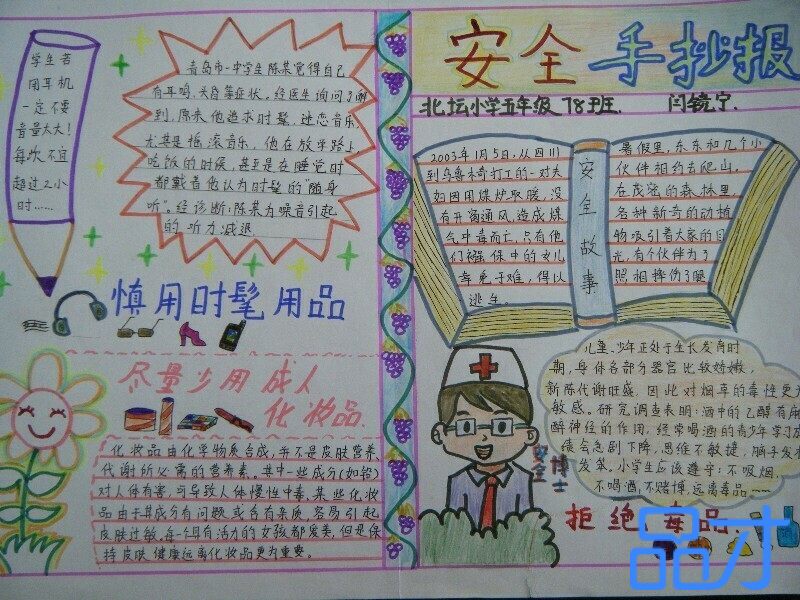 学生若
用耳机
一定不要
音量太大！
每次不宜
超过2小
时……
青岛市一中学生陈某觉得自己
有耳鸣、头昏等症状。经医生询问了解
到，原来他追求时髦，迷恋音乐，
尤其是摇滚音乐，他在放学路上
吃饭的时候，甚至是在睡觉时
都戴着他认为时髦的“随身
听”。经诊断：陈某为噪音引起
的听力减退。
慎用时髦用品
尽量少用成人
化妆品
化妆品由化学物质合成，并不是皮肤营养
代谢所必需的营养素。其中一些成分（如铅）
对人体有害，可导致人体慢性中毒，某些化妆
品由于其成分有问题或含有杂质，容易引起
皮肤过敏。每一个月有活力的女孩都爱美，但是保
持皮肤健康远离化妆品更为重要。
安全手抄报
北坛小学五年级78班. 闫镜宁.
安全故事
2003年1月5日，从四川
到乌鲁木奇打工的一对夫
妇因用煤炉取暖，没
有开窗通风，造成煤
气中毒而亡，只有他
们襁保中的女儿
幸免于难，得以
逃生。
暑假里，东东和几个小
伙伴相约去爬山，
在茂密的森林里，
各种新奇的动植
物吸引着大家的目
光，有个伙伴为了
照相摔伤了腿
儿童、少年正处于生长发育时
期，身体各部分器官比较娇嫩，
新陈代谢旺盛，因此对烟草的毒性更为
敏感。研究调查表明：酒中的乙醇有麻
醉神经的作用，经常喝酒的青少年学习成
绩会急剧下降，思维不敏捷，脑手发木
发笨。小学生应该遵守：不吸烟，
不喝酒，不赌博，远离毒品……
安全博士
拒绝毒品
品才